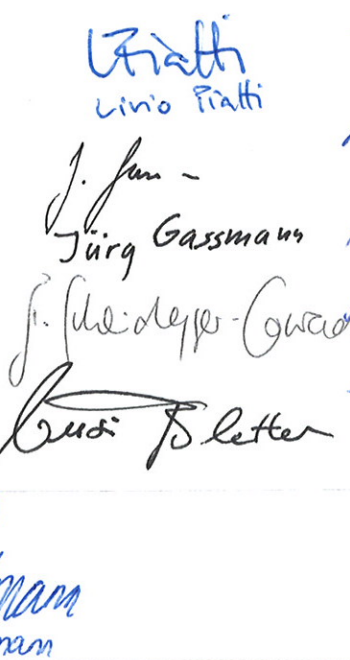 LPiatti
Livio Piatti
J.
Jürg Gassmann
Scheidegger-Conrad
Bletter
mann
mann